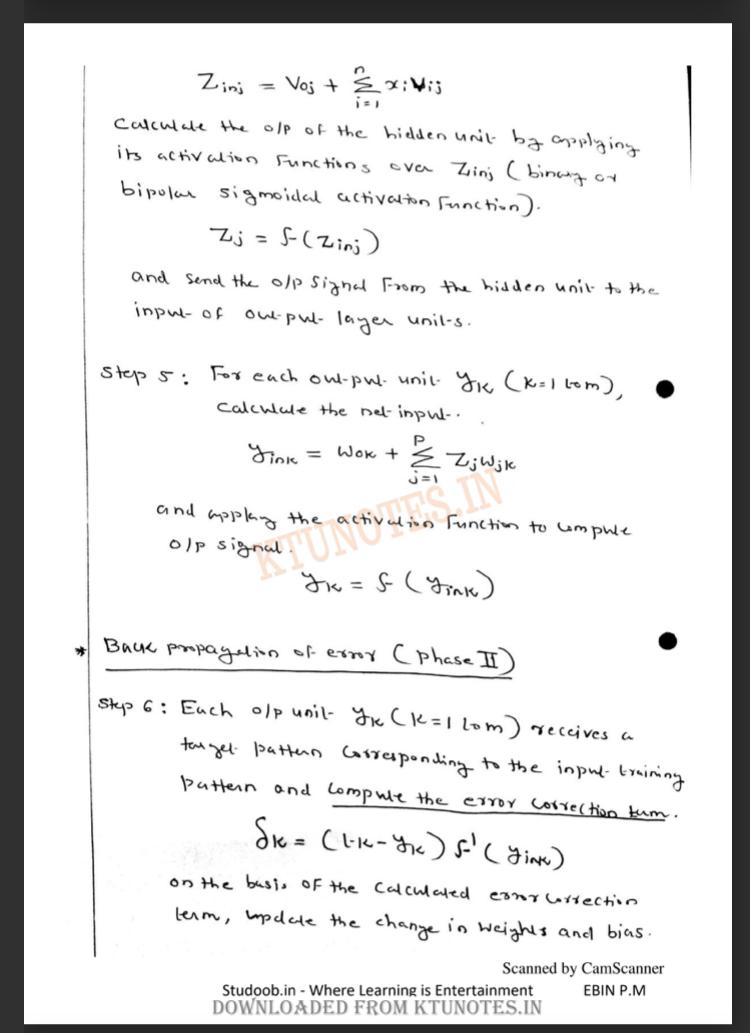 Zinj = Voj + Σ xiVij
n
i=1
Calculate the o/p of the hidden unit by applying
its activation functions over Zinj (binary or
bipolar sigmoidal activation function).
Zj = f(Zinj)
and send the o/p signal from the hidden unit to the
input of output layer units.
Step 5: For each output unit yk (k=1 to m),
calculate the net input.
yink = Wok + Σ ZjWjk
P
j=1
and applying the activation function to compute
o/p signal.
yk = f(yink)
KTUNOTES.IN
* Back propagation of error (phase II)
Step 6: Each o/p unit yk (k=1 to m) receives a
target pattern corresponding to the input training
pattern and compute the error correction term.
δk = (tk-yk) f'(yink)
on the basis of the calculated error correction
term, update the change in weights and bias.
Scanned by CamScanner
Studoob.in - Where Learning is Entertainment EBIN P.M
DOWNLOADED FROM KTUNOTES.IN